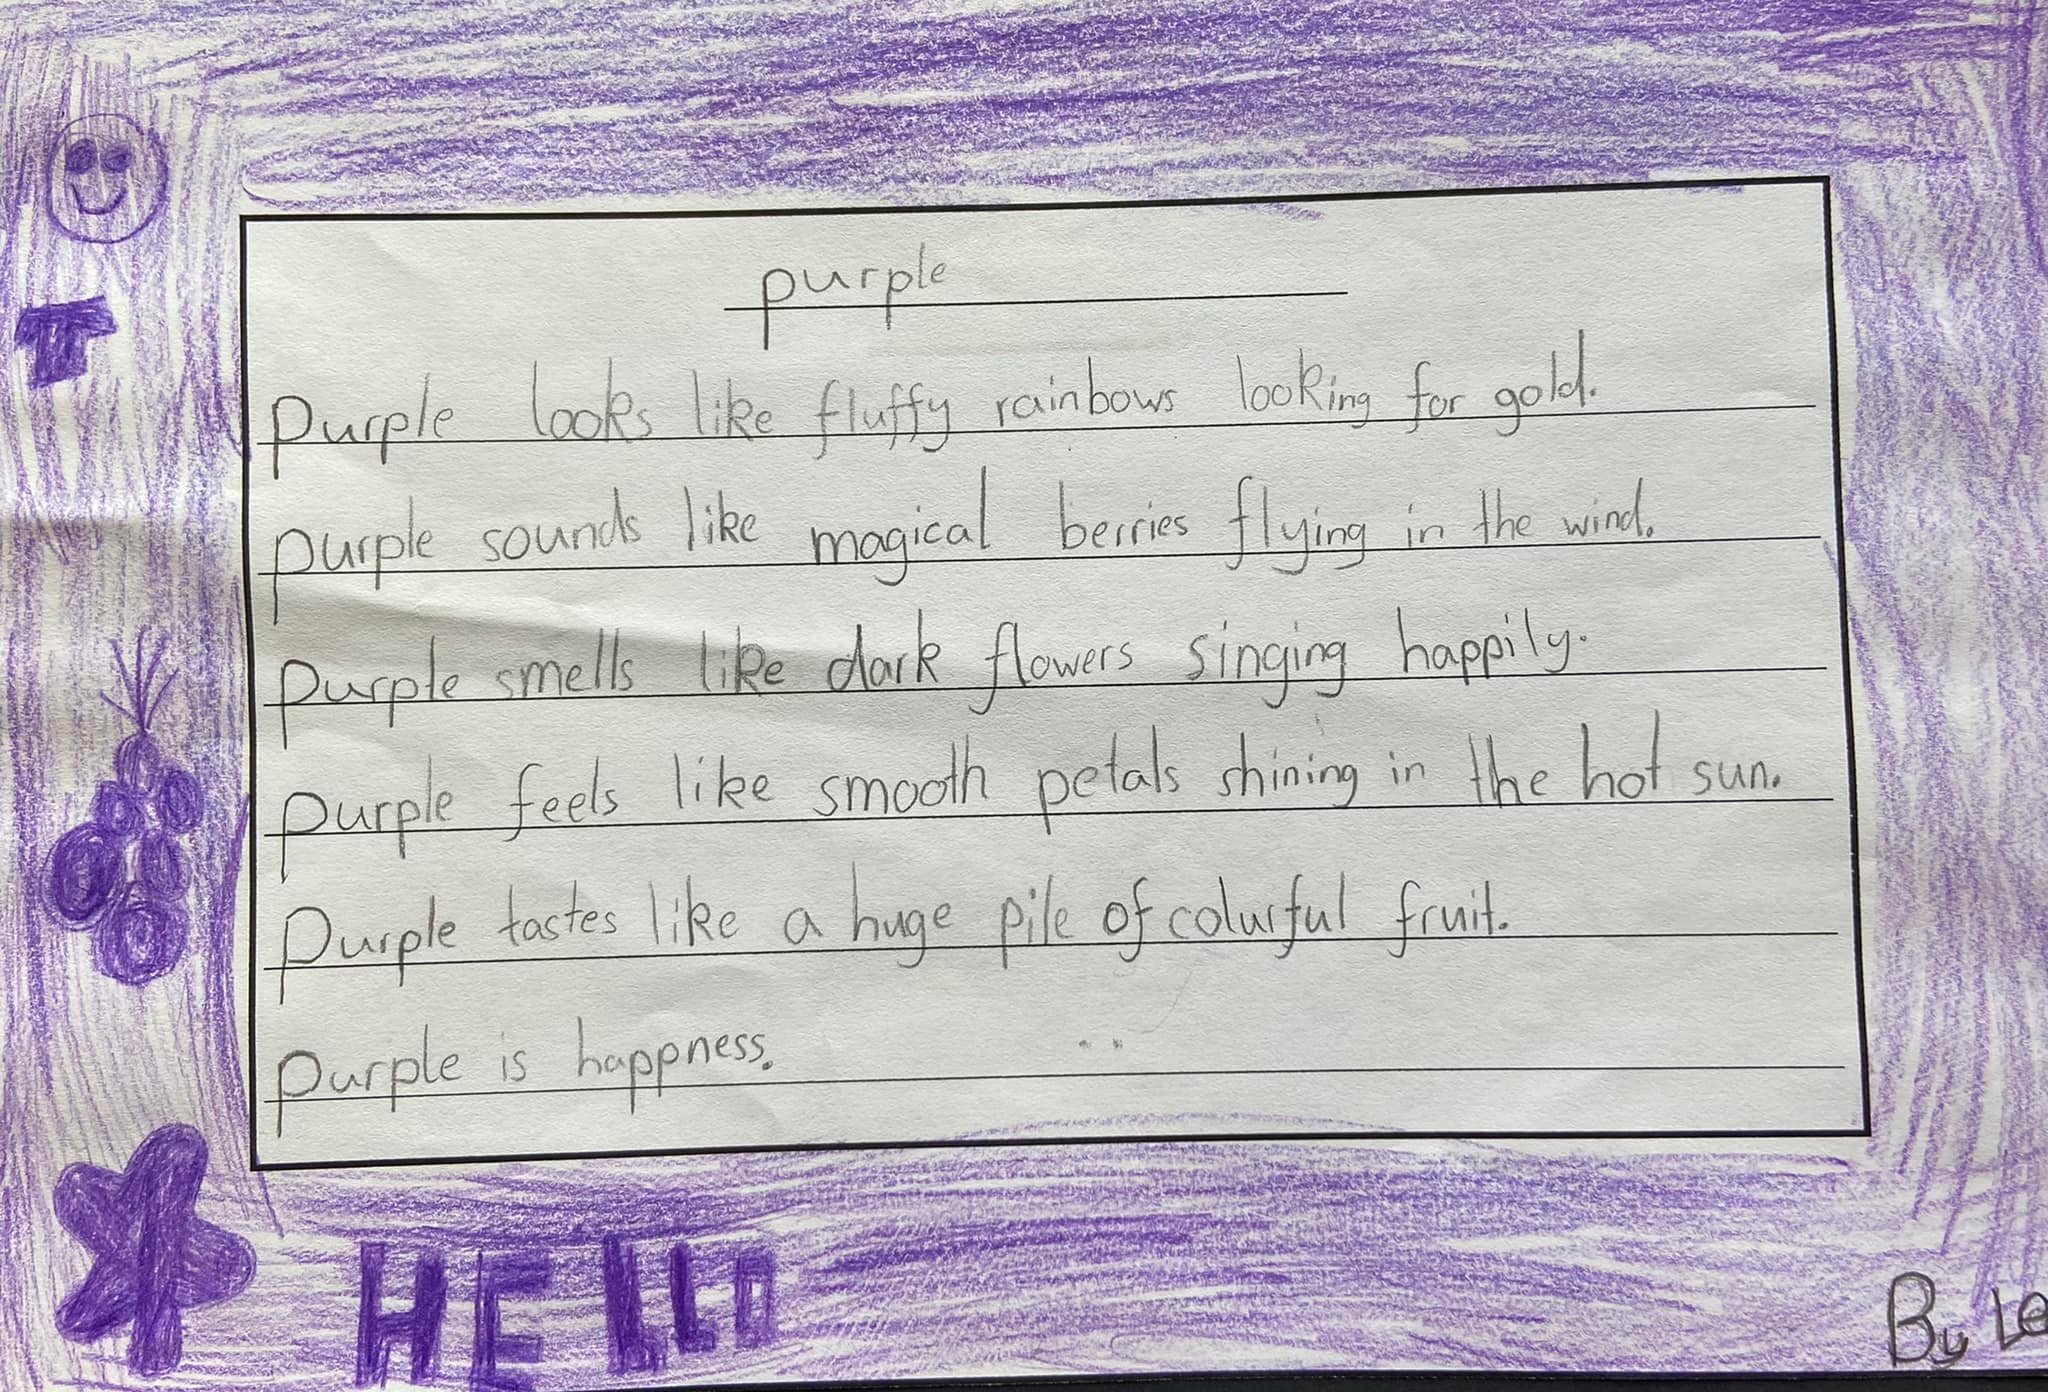 purple
Purple looks like fluffy rainbows looking for gold.
purple sounds like magical berries flying in the wind.
Purple smells like dark flowers singing happily.
purple feels like smooth petals shining in the hot sun.
Purple tastes like a huge pile of colurful fruit.
Purple is happness.
HELLO
By Le